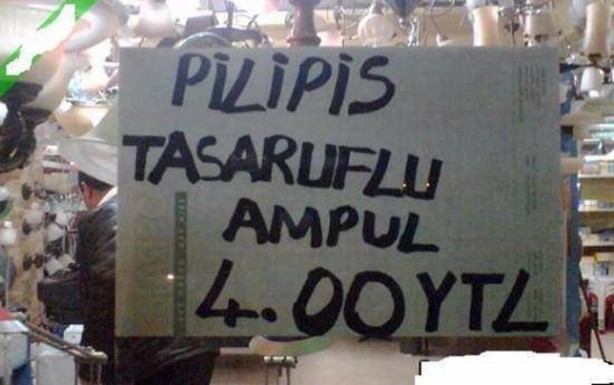 PiLiPiS
TASARUFLU
AMPUL
4.00 YTL